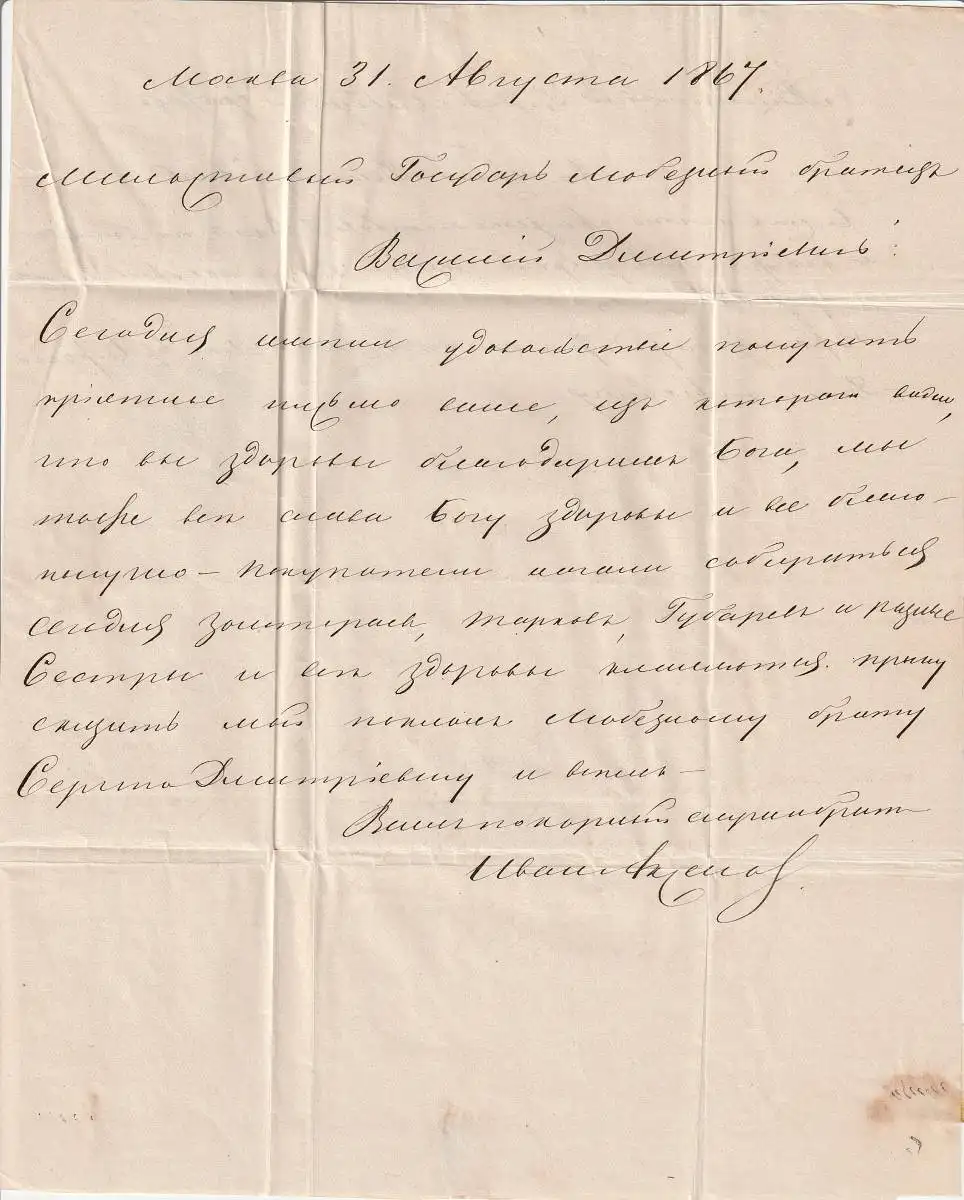 Москва 31. Августа 1867.
Милостивый Государь Любезный братецъ
Василий Димитріевичь!
Сегодня имели удовольствие получить
пріетное письмо ваше, изъ котораго видим,
что вы здоровы благодаримъ Бога, мы
тоже все слава Богу здоровы и все благо-
получно – покупатели начали собираться
сегодня Золотарев, Марков, Губаревъ и разные
Сестры и все здоровы кланиются. прошу
сказать мой поклонъ Любезному брату
Сергею Димитріевичу и всемъ –
Вашъ покорный слуга и братъ
Иван Аксенов